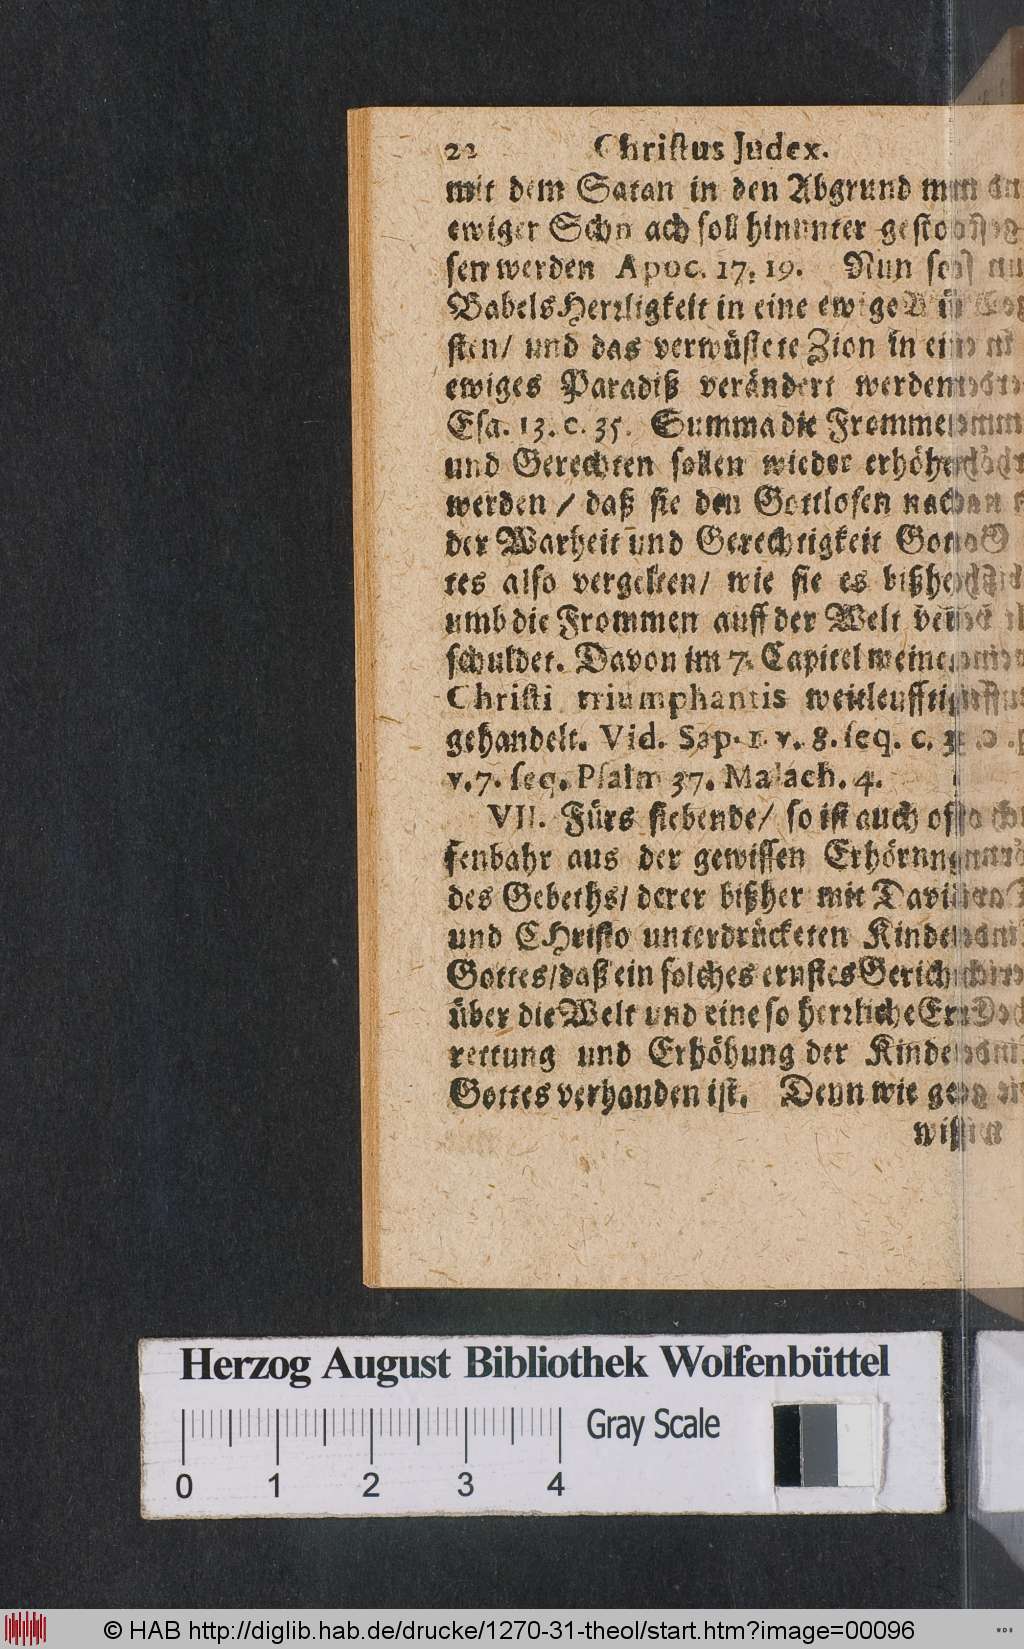 22 Christus Judex.
mit dem Satan in den Abgrund
ewiger Schmach soll hinunter gestos-
sen werden Apoc. 17, 19. Nun soll
Babels Herrligkeit in eine ewige Wü-
sten/ und das verwüstete Zion in ein
ewiges Paradiß verändert werden
Esa. 13. c. 35. Summa die Frommen
und Gerechten sollen wieder erhöhet
werden / daß sie den Gottlosen nach
der Warheit und Gerechtigkeit Got-
tes also vergelten/ wie sie es bißher
umb die Frommen auff der Welt ver-
schuldet. Davon im 7. Capitel meines
Christi triumphantis weitleufftig
gehandelt. Vid. Sap. 1. v. 8. seq. c. 3.
v. 7. seq. Psalm 37. Malach. 4.
VII. Fürs siebende/ so ist auch of-
fenbahr aus der gewissen Erhörung
des Gebeths/ derer bißher mit David
und CHristo unterdrücketen Kinder
Gottes/ daß ein solches ernstes Gericht
über die Welt und eine so herrliche Er-
rettung und Erhöhung der Kinder
Gottes verhanden ist. Denn wie ge-
wiß
Herzog August Bibliothek Wolfenbüttel
Gray Scale
0 1 2 3 4
© HAB http://diglib.hab.de/drucke/1270-31-theol/start.htm?image=00096